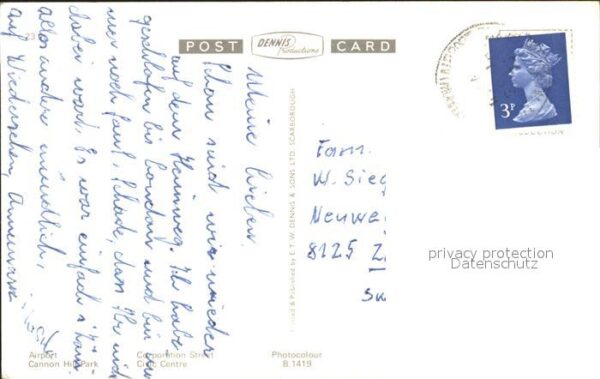 POST
DENNIS
Productions
CARD
3P
Meine Lieben.
Schon sind wir wieder
auf dem Heimweg. Ich habe
geschlafen bis London und bin
nur noch faul. Schade, dass Ihr nicht
dabei wart. Es war einfach
alles andere mündlich,
auf Wiedersehen, Annemarie
Printed & Published by E. T. W. DENNIS & SONS LTD. SCARBOROUGH
Fam.
W. Sieg
Neuwe
8125 Z
privacy protection
Datenschutz
Airport
Cannon Hill Park
Corporation Street
Civic Centre
Photocolour
B.1419